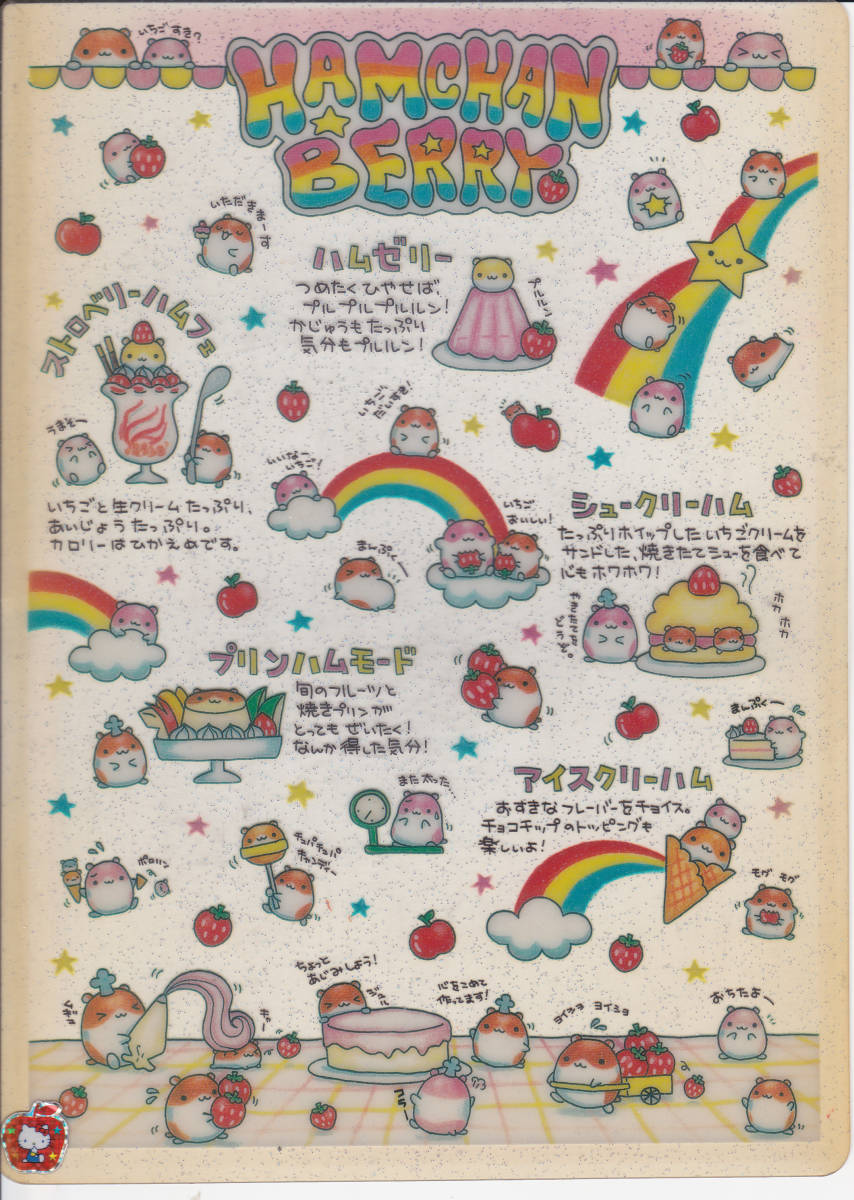 いちごすき?
HAMCHAN
BERRY
いただきまーす
ハムゼリー
つめたくひやせば、
プルプルプルルン!
かじゅうもたっぷり
気分もプルルン!
プルルン
ストロベリーハムフェ
うまそー
いちごと生クリームたっぷり、
あいじょうたっぷり。
カロリーはひかえめです。
いちご
だいすき!
いいなー
いちご!
いちご
おいしい!
まんぷくー
シュークリーハム
たっぷりホイップしたいちごクリームを
サンドした、焼きたてシューを食べて
心もホワホワ!
ホカ
ホカ
やきたてを
どうぞ。
プリンハムモード
旬のフルーツと
焼きプリンが
とってもぜいたく!
なんか得した気分!
まんぷくー
アイスクリーハム
おすきなフレーバーをチョイス。
チョコチップのトッピングも
楽しいよ!
また太った…
チュパチュパ
キャンディー
ポロリン
モグ モグ
ちょっと
あじみしよう!
心をこめて
作ってます!
ヨイショ ヨイショ
おちたよー
キャー
コラ